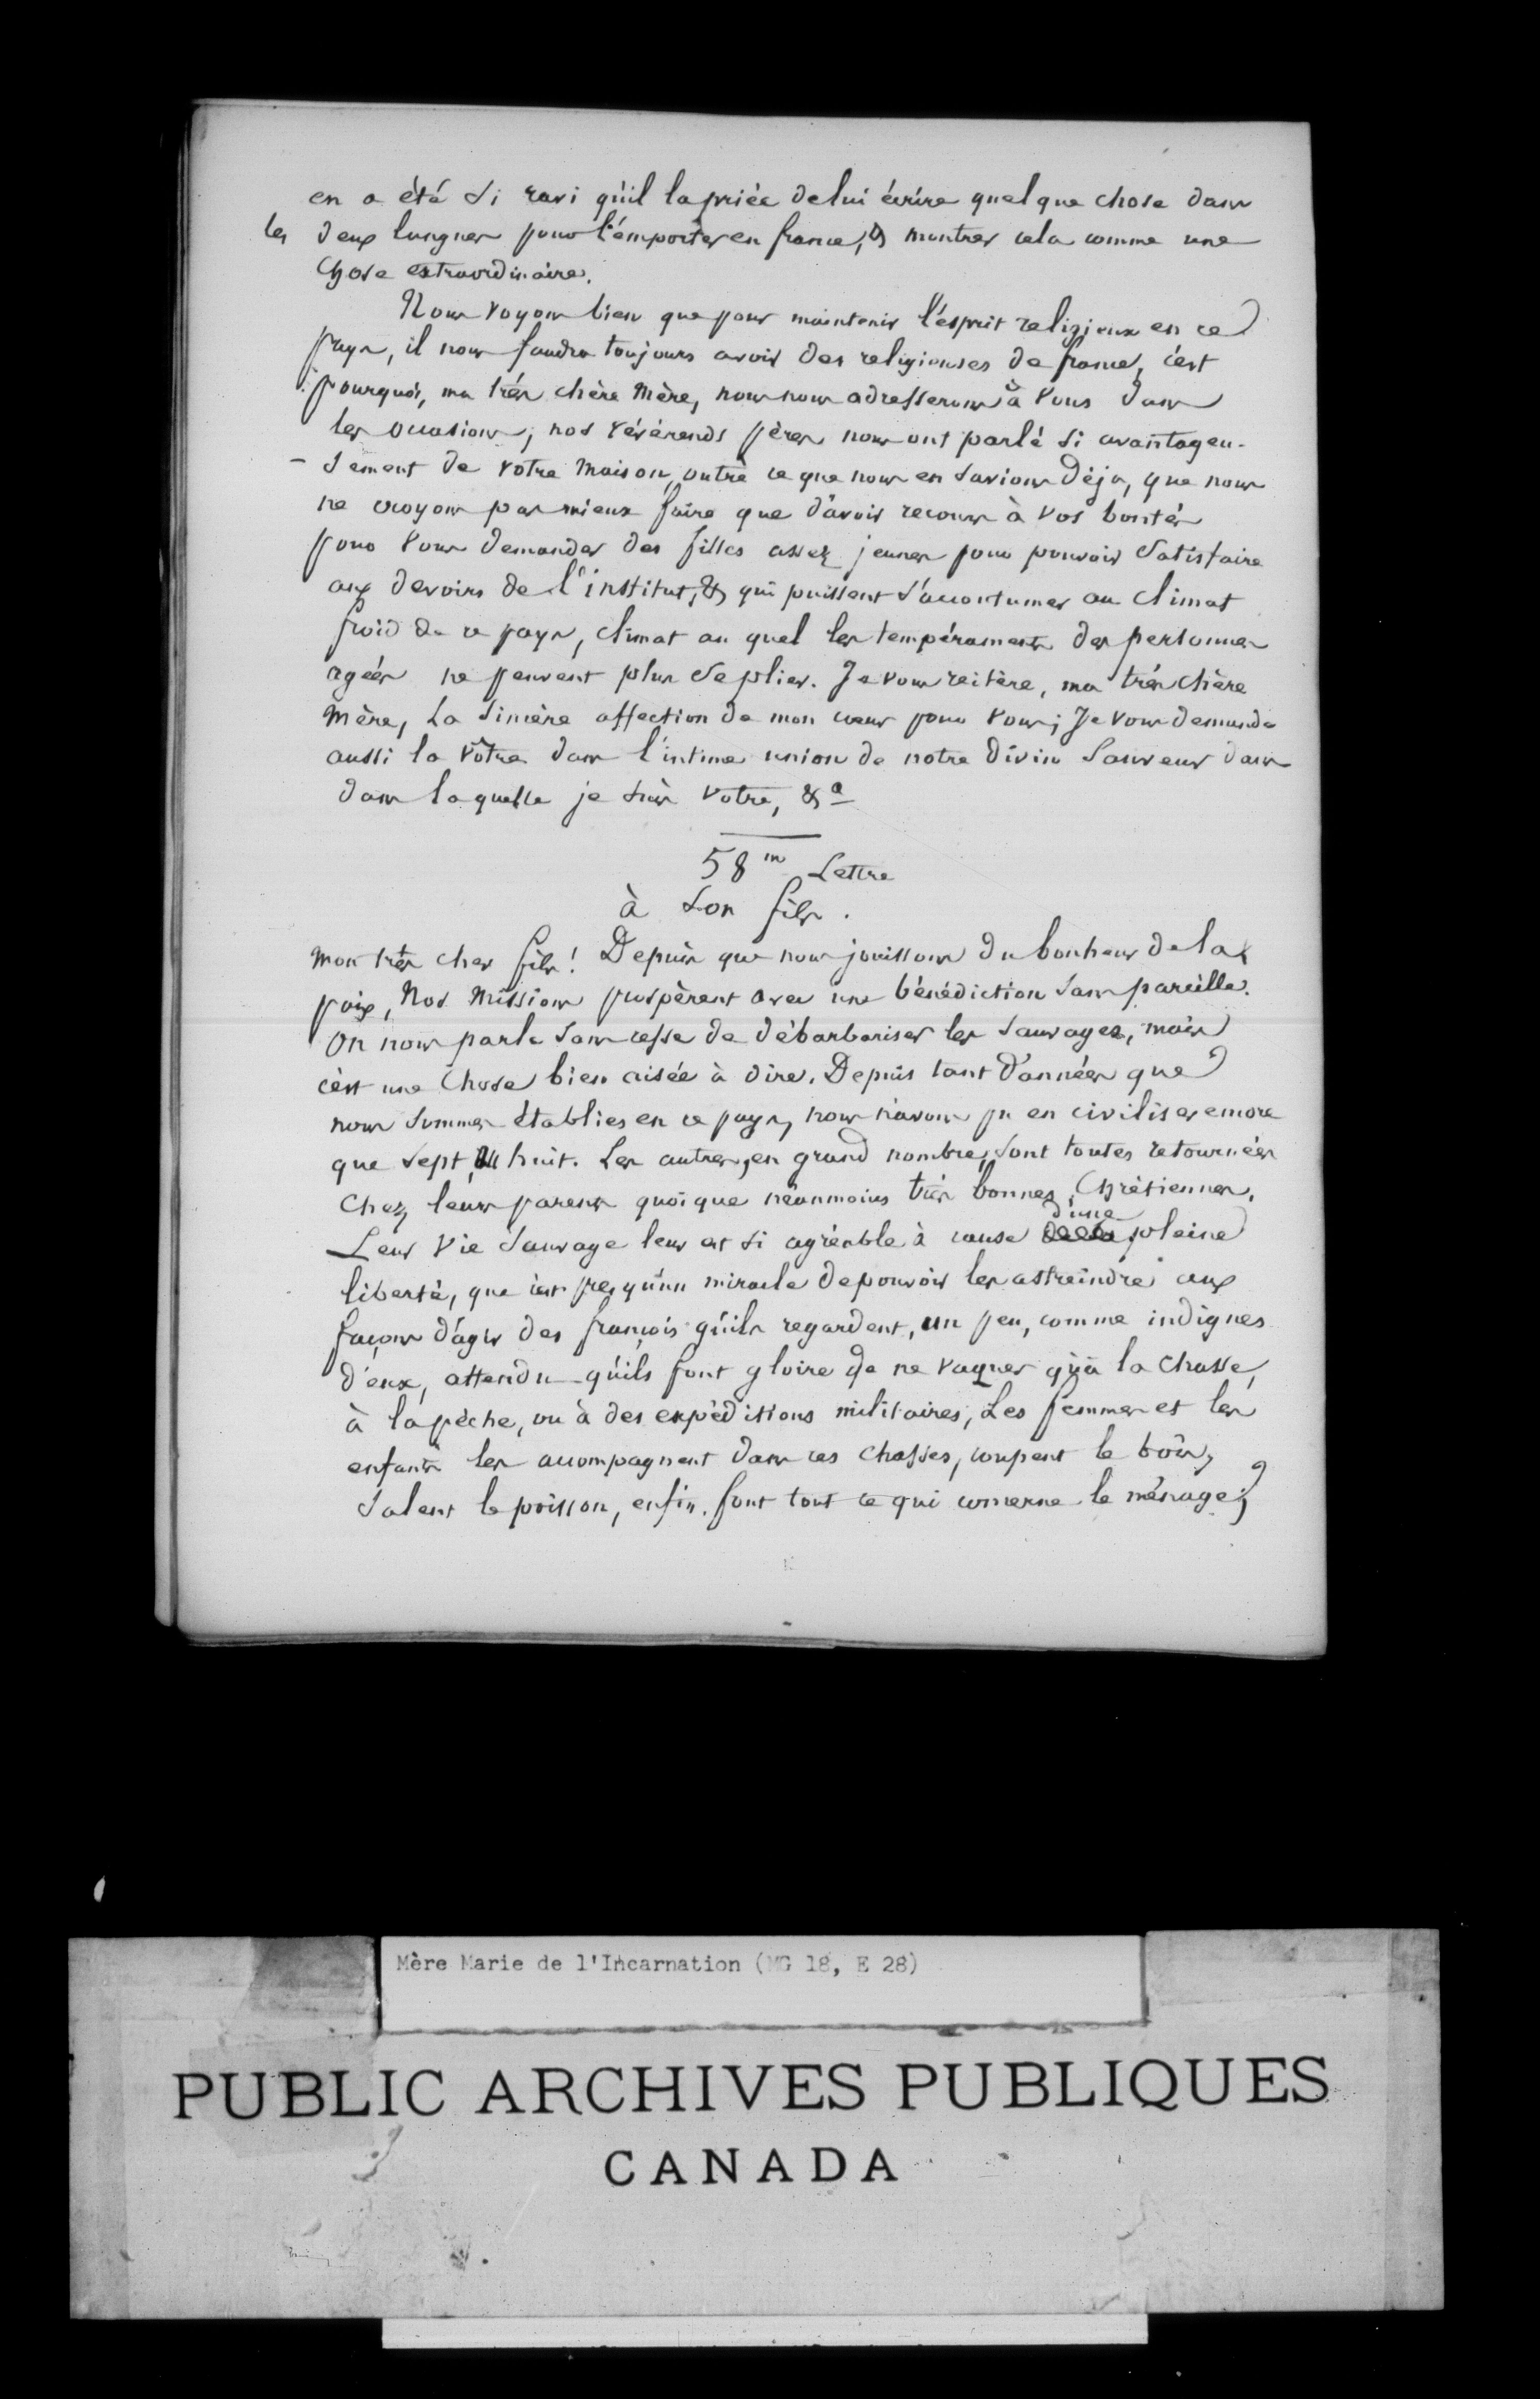 en a été si ravi qu'il la priée de lui écrire quelque chose dans
les deux langues pour l'émporter en france, & montrer cela comme une
chose extraordinaire.
Nous voyons bien que pour maintenir l'ésprit religieux en ce
pays, il nous faudra toujours avoir des religieuses de france, c'est
pourquoi, ma très chère Mère, nous nous adresserons à vous dans
les occasions; nos révérends pères nous ont parlé si avantageu-
- sement de votre Maison, outre ce que nous en savions déja, que nous
ne croyons pas mieux faire que d'avoir recours à vos bontés
pour vous demander des filles assez jeunes pour pouvoir satisfaire
aux devoirs de l'institut, & qui puissent s'accoutumer au climat
froid de ce pays, climat au quel les tempéraments des personnes
agées ne peuvent plus se plier. Je vous reitère, ma très chère
Mère, la sincère affection de mon cœur pour vous; Je vous demande
aussi la vôtre dans l'intime union de notre divin Sauveur dans
dans laquelle je suis votre, &a
58me Lettre
à son fils.
Mon très cher fils! Depuis que nous jouissons du bonheur de la
paix, Nos Missions prospèrent avec une bénédiction sans pareille.
On nous parle sans cesse de débarbariser les Sauvages, mais
c'est une chose bien aisée à dire. Depuis tant d'années que
nous sommes établies en ce pays, nous n'avons pu en civiliser encore
que sept ou huit. Les autres, en grand nombre, sont toutes retournées
chez leurs parents quoique néanmoins très bonnes Chrétiennes.
d'une
Leur vie sauvage leur est si agréable à cause de la pleine
liberté, que c'est presqu'un miracle de pouvoir les astreindre aux
façons d'agir des françois qu'ils regardent, un peu, comme indignes
d'eux, attendu qu'ils font gloire de ne vaquer qu'à la chasse,
à la pêche, ou à des expéditions militaires, Les femmes et les
enfants les accompagnent dans ces chasses, coupent le bois,
salent le poisson, enfin font tout ce qui concerne le ménage;
Mère Marie de l'Incarnation (MG 18, E 28)
PUBLIC ARCHIVES PUBLIQUES
CANADA